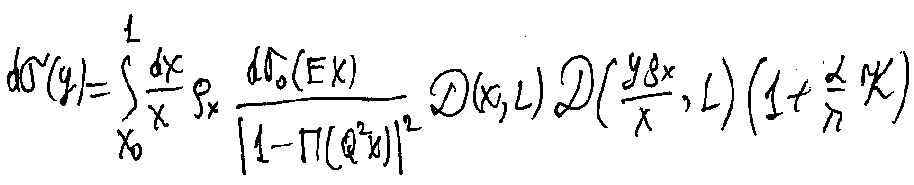 dσ(y) = ∫_{x₀}^{1} \frac{dx}{x} ρ_x \frac{dσ₀(Ex)}{|1-Π(Q²x)|²} 𝒟(x, L) 𝒟(\frac{yρ_x}{x}, L) (1 + \frac{α}{π} 𝒦)